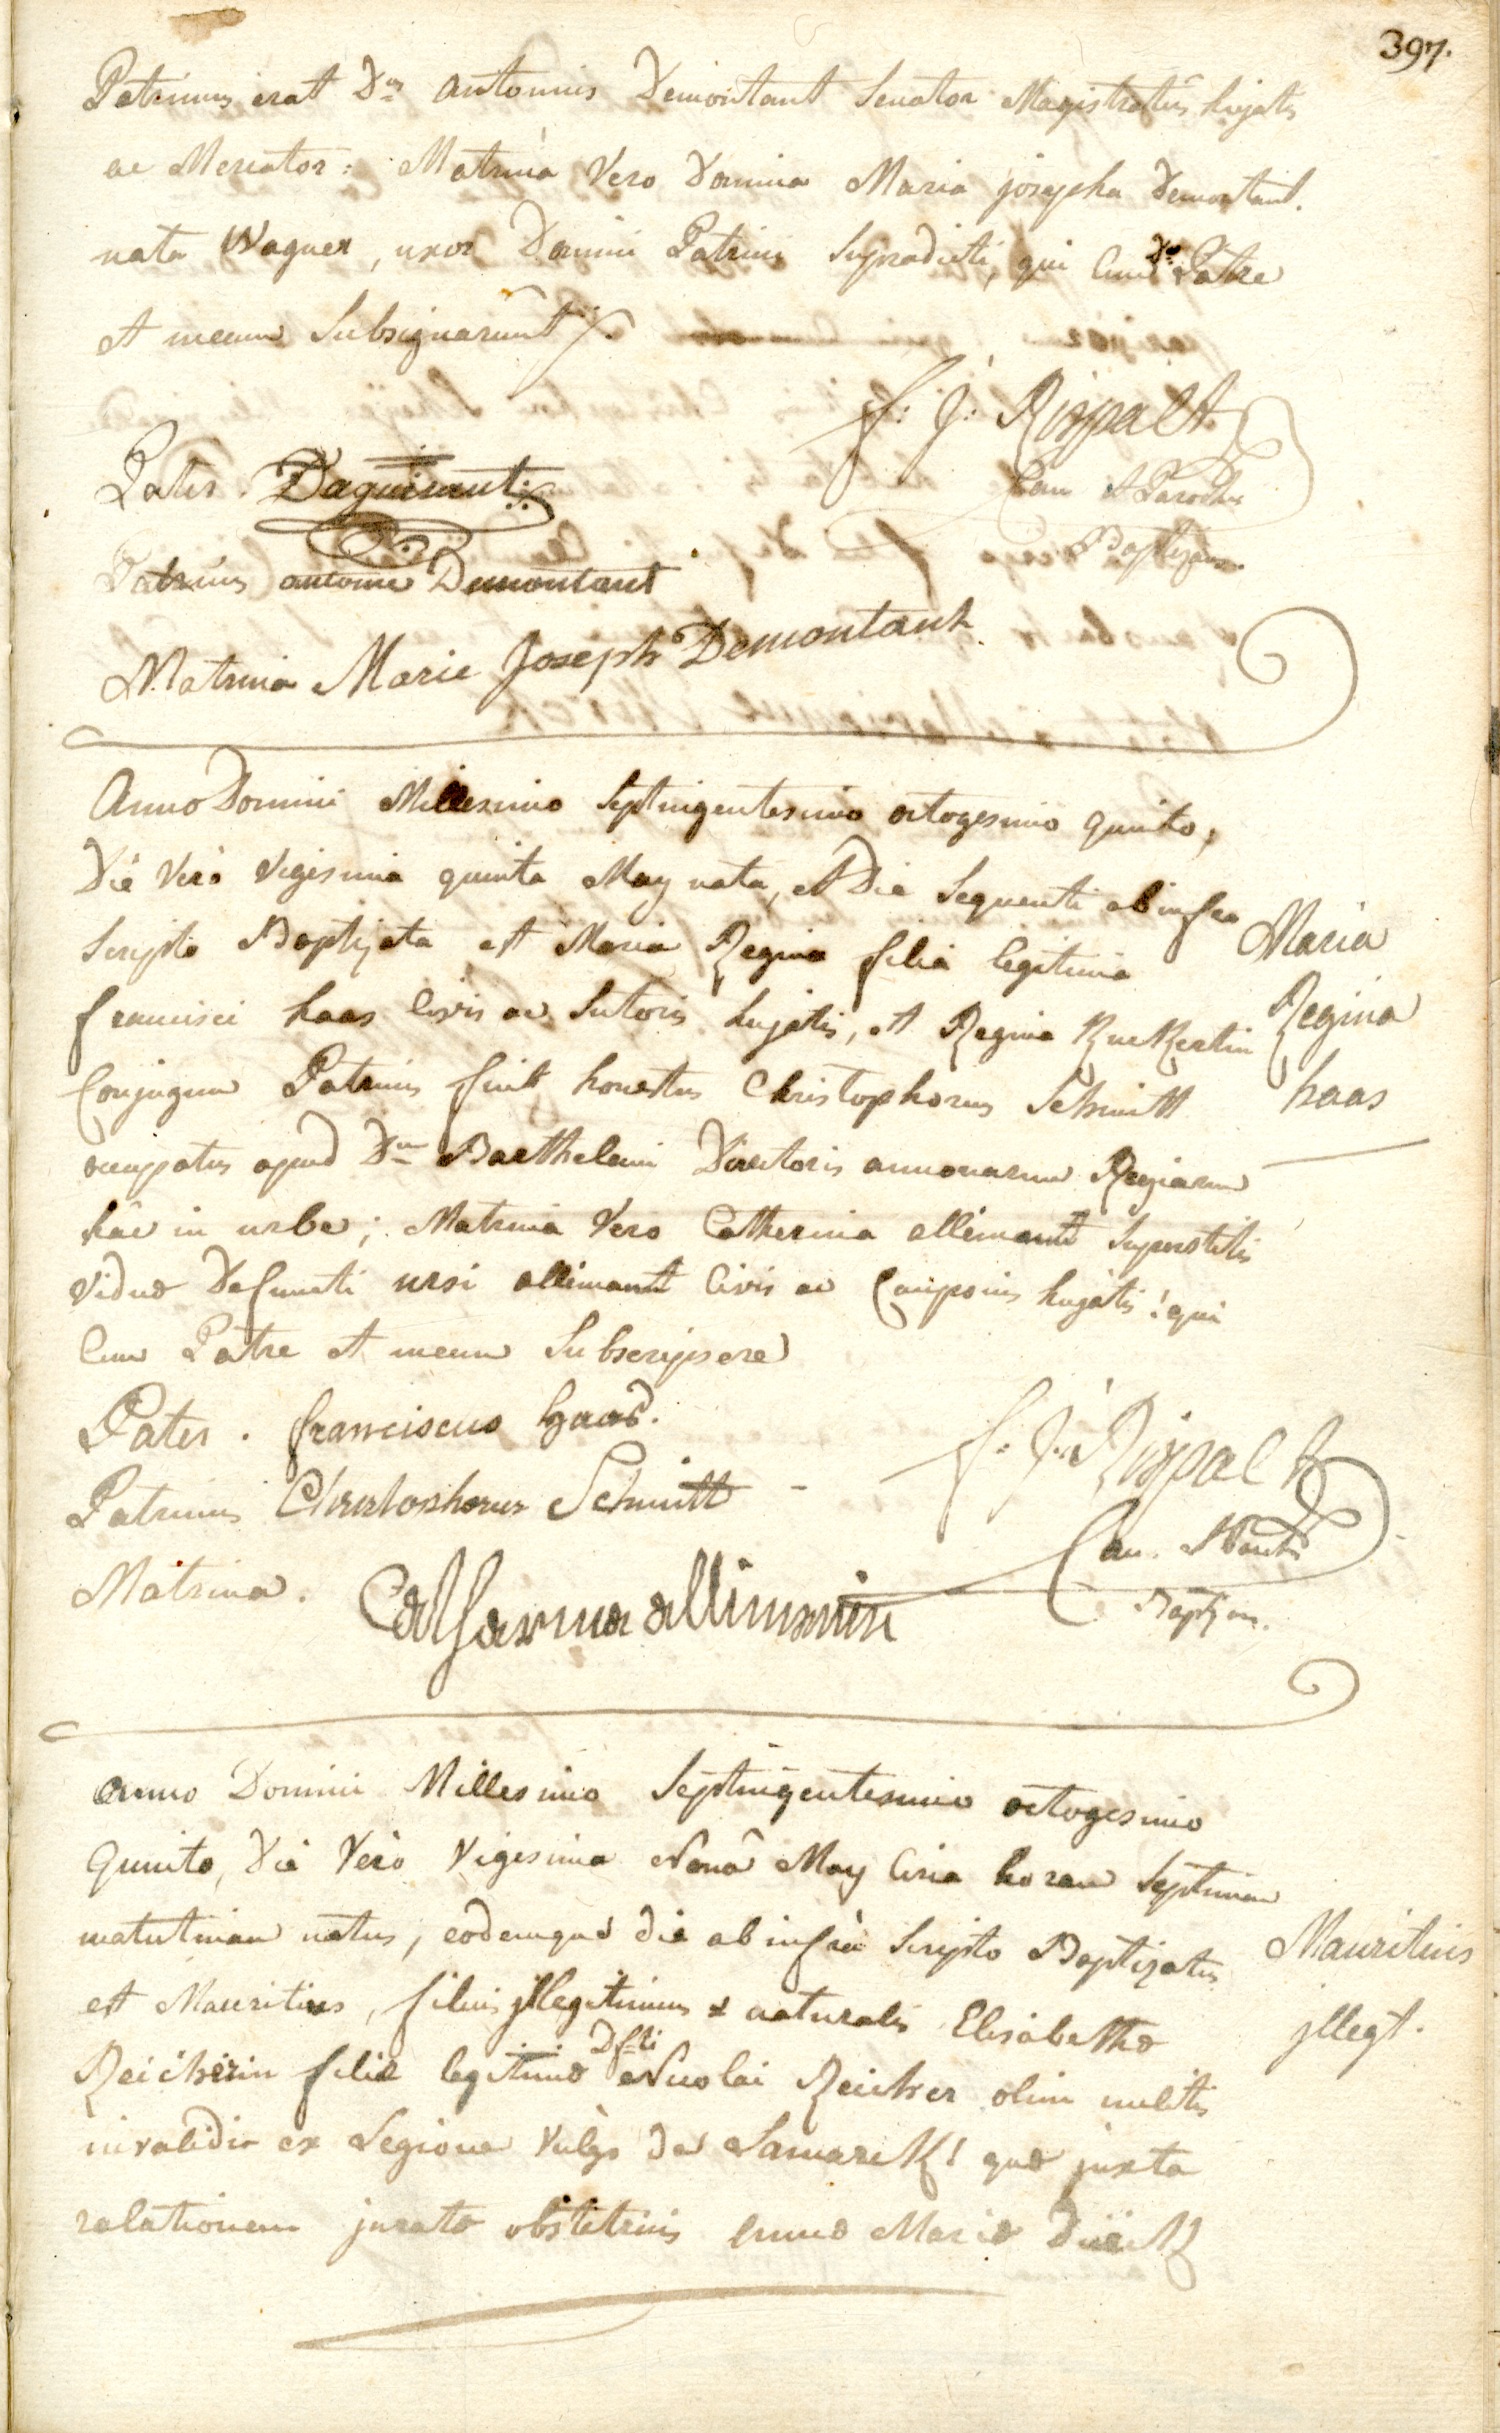 397.
Patrinus erat Dnus Antonius Demontant Senator Magistratûs hujatis
ac Mercator: Matrina Vero Domina Maria josepha Demontant.
nata Wagner, uxor Domini Patrini Supradicti, qui Cum Dno Patre
et mecum Subsignarunt
f: J: Rispalt
Can et Parochus
Baptizans.
Pater. Daguisant
Patrinus antoine Demontant
Matrina Marie Joseph Demontant
Anno Domini Millesimo Septingentesimo octogesimo quinto,
Die Verò vigesima quinta May nata, et Die Sequenti ab infra
Scripto Baptizata est Maria Regina filia legitima
francisci haas Civis ac Sutoris hujatis, et Regina Ruckertin
Conjugum Patrinus fuit honestus Christophorus Schmitt
occupatus apud Dnum Barthelemi Directoris annonarum Regiarum
hâc in urbe; Matrina Vero Catherina allimant Superstitis
vidua Defuncti ursi allimant Civis ac Cauponis hujatis! qui
Cum Patre et mecum Subscripsere
Maria
Regina
haas
Pater. franciscus Haas.
Patrinus Christophorus Schmitt
Matrina. Catharina allimanin
f: J: Rispalt
Can. et Paroch
Baptizans.
Anno Domini Millesimo Septingentesimo octogesimo
Quinto, Die Verò Vigesima Nonâ May Circa horam Septimam
matutinam natus, eodemque die ab infra Scripto Baptizatus
est Mauritius, filius jllegitimus & naturalis Elisabetha
Reicherin filia legitima Dfti Nicolai Reicher olim militis
invalidi ex Legione Vulgo de Lamarck! qua juxta
relationem jurata obstetricis Anna Maria Dück
Mauritius
jllegt.